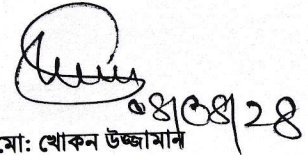 ০৪/০৪/২৪
মো: খোকন উজ্জামান